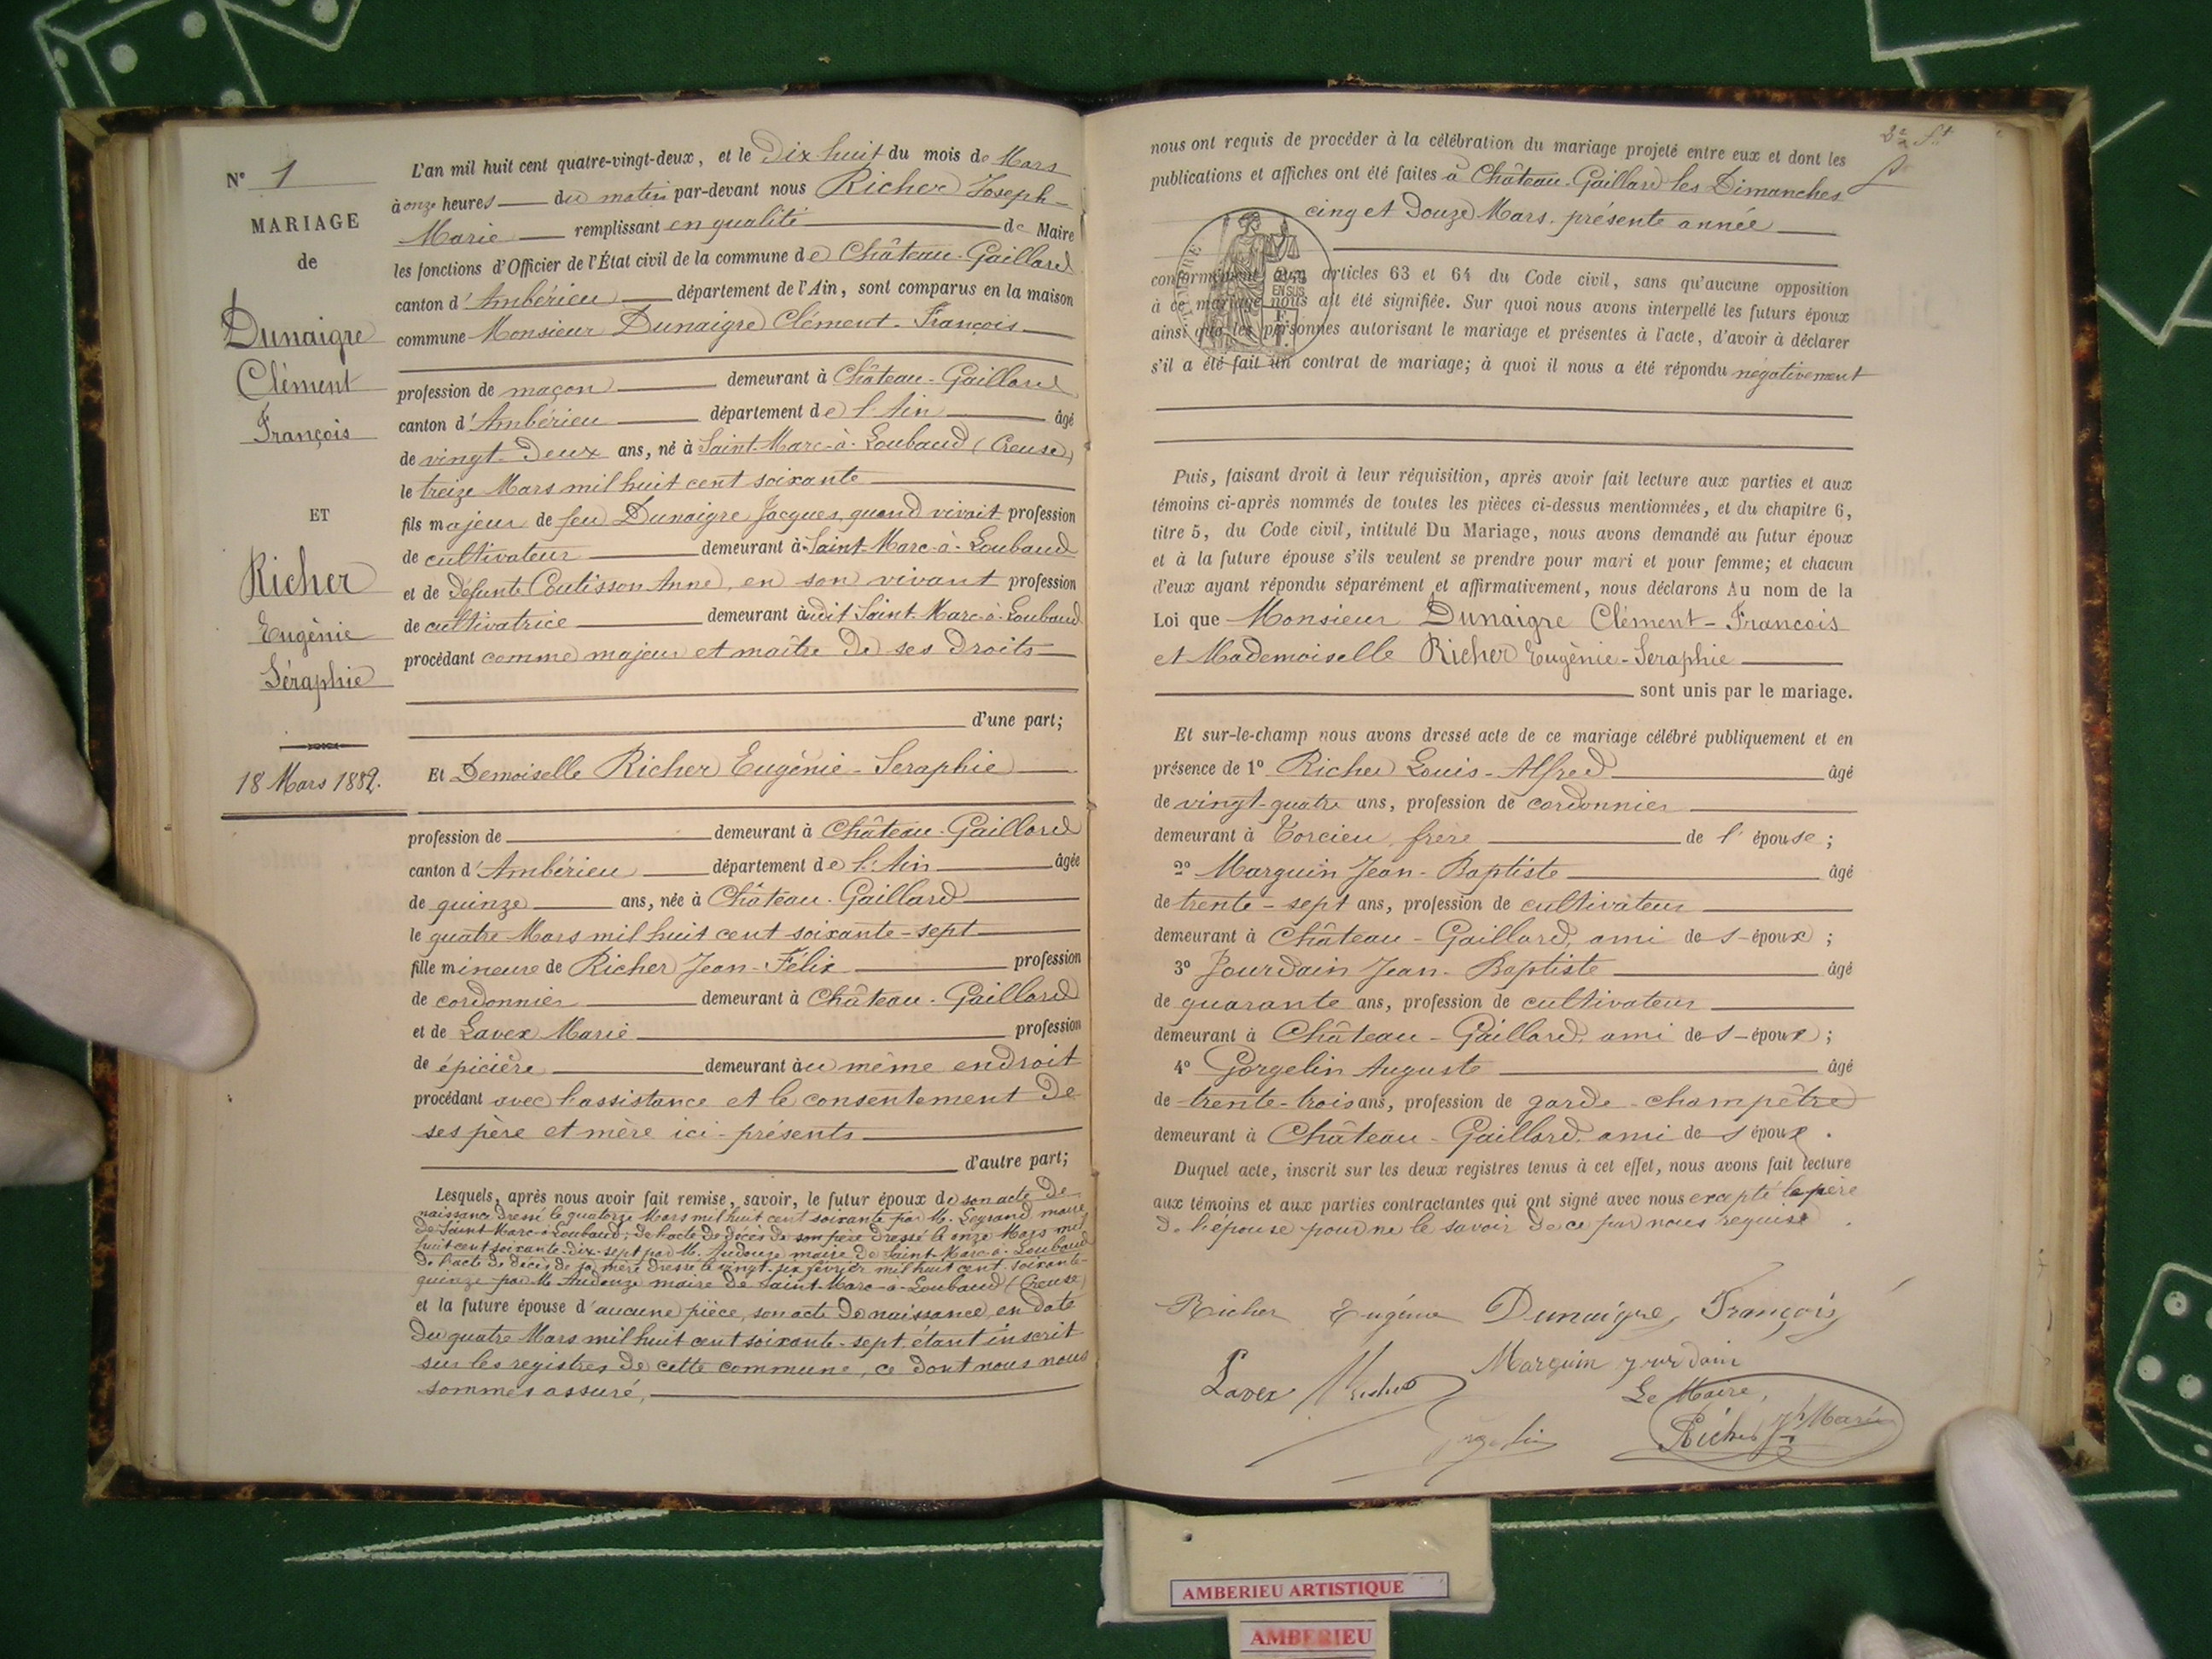 N° 1
MARIAGE
de
Dunaigre
Clément
François
ET
Richer
Eugènie
Séraphie
18 Mars 1882.
L'an mil huit cent quatre-vingt-deux, et le Dix-huit du mois de Mars
à onze heures du matin par-devant nous Richer Joseph-
Marie remplissant en qualité de Maire
les fonctions d'Officier de l'État civil de la commune de Château-Gaillard
canton d'Ambérieu département de l'Ain, sont comparus en la maison
commune Monsieur Dunaigre Clément-François
profession de maçon demeurant à Château-Gaillard
canton d'Ambérieu département de l'Ain âgé
de vingt-deux ans, né à Saint-Marc-à-Loubaud (Creuse)
le treize Mars mil huit cent soixante
fils majeur de feu Dunaigre Jacques, quand vivait profession
de cultivateur demeurant à Saint-Marc-à-Loubaud
et de Défunte Coutisson Anne, en son vivant profession
de cultivatrice demeurant àudit Saint-Marc-à-Loubaud
procédant comme majeur et maître de ses droits
d'une part;
Et Demoiselle Richer Eugénie-Seraphie
profession de demeurant à Château-Gaillard
canton d'Ambérieu département de l'Ain âgée
de quinze ans, née à Château-Gaillard
le quatre Mars mil huit cent soixante-sept
fille mineure de Richer Jean-Félix profession
de cordonnier demeurant à Château-Gaillard
et de Lavex Marie profession
de épicière demeurant àu même endroit
procédant avec l'assistance et le consentement de
ses père et mère ici-présents
d'autre part;
Lesquels, après nous avoir fait remise, savoir, le futur époux de son acte de
naissance dressé le quatorze Mars mil huit cent soixante par M. Legrand maire
de Saint-Marc-à-Loubaud; de l'acte de décès de son père dressé le onze Mars mil
huit cent soixante-dix-sept par M. Audouze maire de Saint-Marc-à-Loubaud
de l'acte de décès de sa mère dressé le vingt-six février mil huit cent soixante-
quinze par M. Audouze maire de Saint-Marc-à-Loubaud (Creuse)
et la future épouse d'aucune pièce, son acte de naissance, en date
du quatre Mars mil huit cent soixante-sept, étant inscrit
sur les registres de cette commune, ce dont nous nous
sommes assuré,
nous ont requis de procéder à la célébration du mariage projeté entre eux et dont les
publications et affiches ont été faites à Château-Gaillard les Dimanches
cinq et Douze Mars, présente année
conformément aux articles 63 et 64 du Code civil, sans qu'aucune opposition
à ce mariage nous ait été signifiée. Sur quoi nous avons interpellé les futurs époux
ainsi que les personnes autorisant le mariage et présentes à l'acte, d'avoir à déclarer
s'il a été fait un contrat de mariage; à quoi il nous a été répondu négativement
Puis, faisant droit à leur réquisition, après avoir fait lecture aux parties et aux
témoins ci-après nommés de toutes les pièces ci-dessus mentionnées, et du chapitre 6,
titre 5, du Code civil, intitulé Du Mariage, nous avons demandé au futur époux
et à la future épouse s'ils veulent se prendre pour mari et pour femme; et chacun
d'eux ayant répondu séparément et affirmativement, nous déclarons Au nom de la
Loi que Monsieur Dunaigre Clément-François
et Mademoiselle Richer Eugènie-Seraphie
sont unis par le mariage.
Et sur-le-champ nous avons dressé acte de ce mariage célébré publiquement et en
présence de 1° Richer Louis-Alfred âgé
de vingt-quatre ans, profession de cordonnier
demeurant à Torcieu, frère de l'épouse;
2° Marguin Jean-Baptiste âgé
de trente-sept ans, profession de cultivateur
demeurant à Château-Gaillard, ami des-époux;
3° Jourdain Jean-Baptiste âgé
de quarante ans, profession de cultivateur
demeurant à Château-Gaillard, ami des-époux;
4° Gorgelin Auguste âgé
de trente-trois ans, profession de garde-champêtre
demeurant à Château-Gaillard, ami des époux.
Duquel acte, inscrit sur les deux registres tenus à cet effet, nous avons fait lecture
aux témoins et aux parties contractantes qui ont signé avec nous excepté le père
de l'épouse pour ne le savoir de ce par nous requise
Richer Eugénie Dunaigre François
Marguin jourdain
Lavex Richer
Le Maire,
Gorgelin Richer Jh Marie
AMBERIEU ARTISTIQUE
AMBERIEU